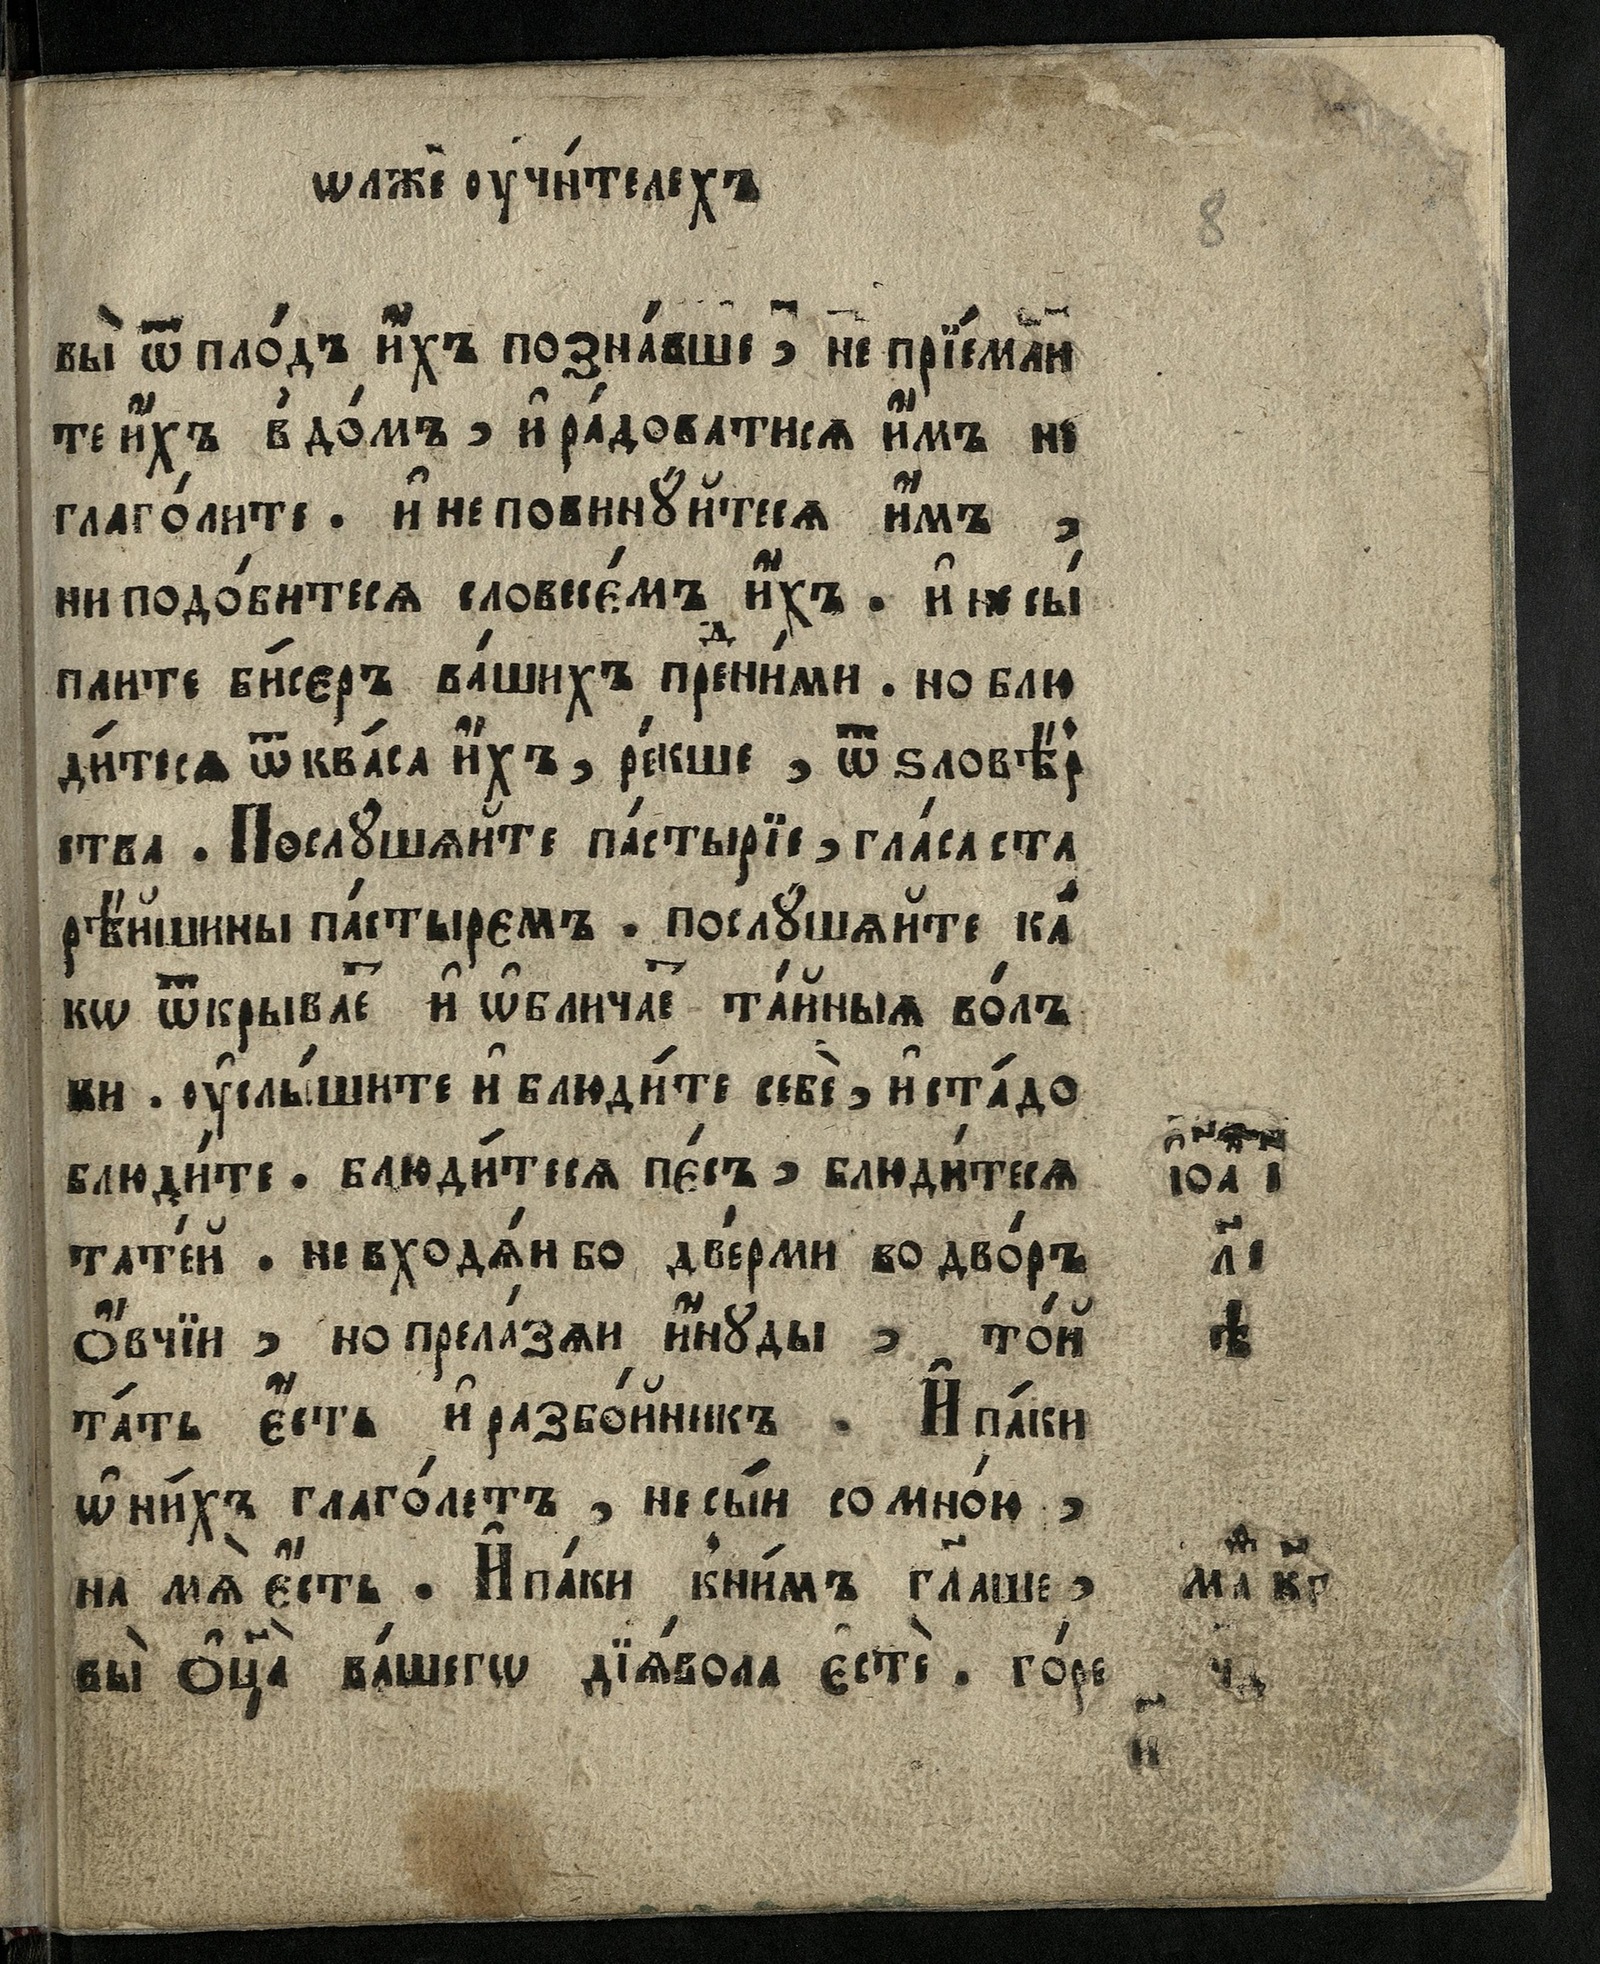 ѡлже҃ оучи́телехъ
8
вы̀ ѿ пло́дъ и҆́хъ позна́вше, не прїе́маи
те и҆́хъ в̾ до́мъ, и҆ ра́доватисѧ и҆́мъ не
глаго́лите. и҆ не повинꙋ́йтесѧ и҆́мъ ,
ни подо́битесѧ словесє́мъ и҆́хъ. и҆ не сы́
плите би́сєръ ва́шихъ преⷣни́ми. но блю
ди́тесѧ ѿ ква́са и҆́хъ, ре́кше, ѿ ѕловѣ́р
ства. Послꙋ́шѧйте па́стырїе, гла́са ста
рѣ́йшины па́стырємъ. послꙋ́шѧйте ка́
кѡ ѿкрывае҃ и҆ ѡ҆бличае҃ та́йныѧ во́лъ
ки. оу҆слы́шите и҆ блюди́те себѐ, и҆ ста́до
блюди́те. блюди́тесѧ пє́съ, блюди́тесѧ
тате́й. не входѧ́и бо две́рми во дво́ръ
ѻ҆́вчїи, но прела́зѧи и҆́нꙋды, то́й
та́ть є҆́сть и҆ разбо́йникъ. И҆ па́ки
ѡ҆ ни́хъ глаго́летъ, не сы́и со мно́ю,
на мѧ̀ є҆́сть. И҆ па́ки к̾ни́мъ гл҃аше,
вы̀ ѻ҆ц҃а̀ ва́шегѡ дїѧ́вола є҆стѐ. го́ре
іоа і
л҃е
ма к҃г
чд
и҃